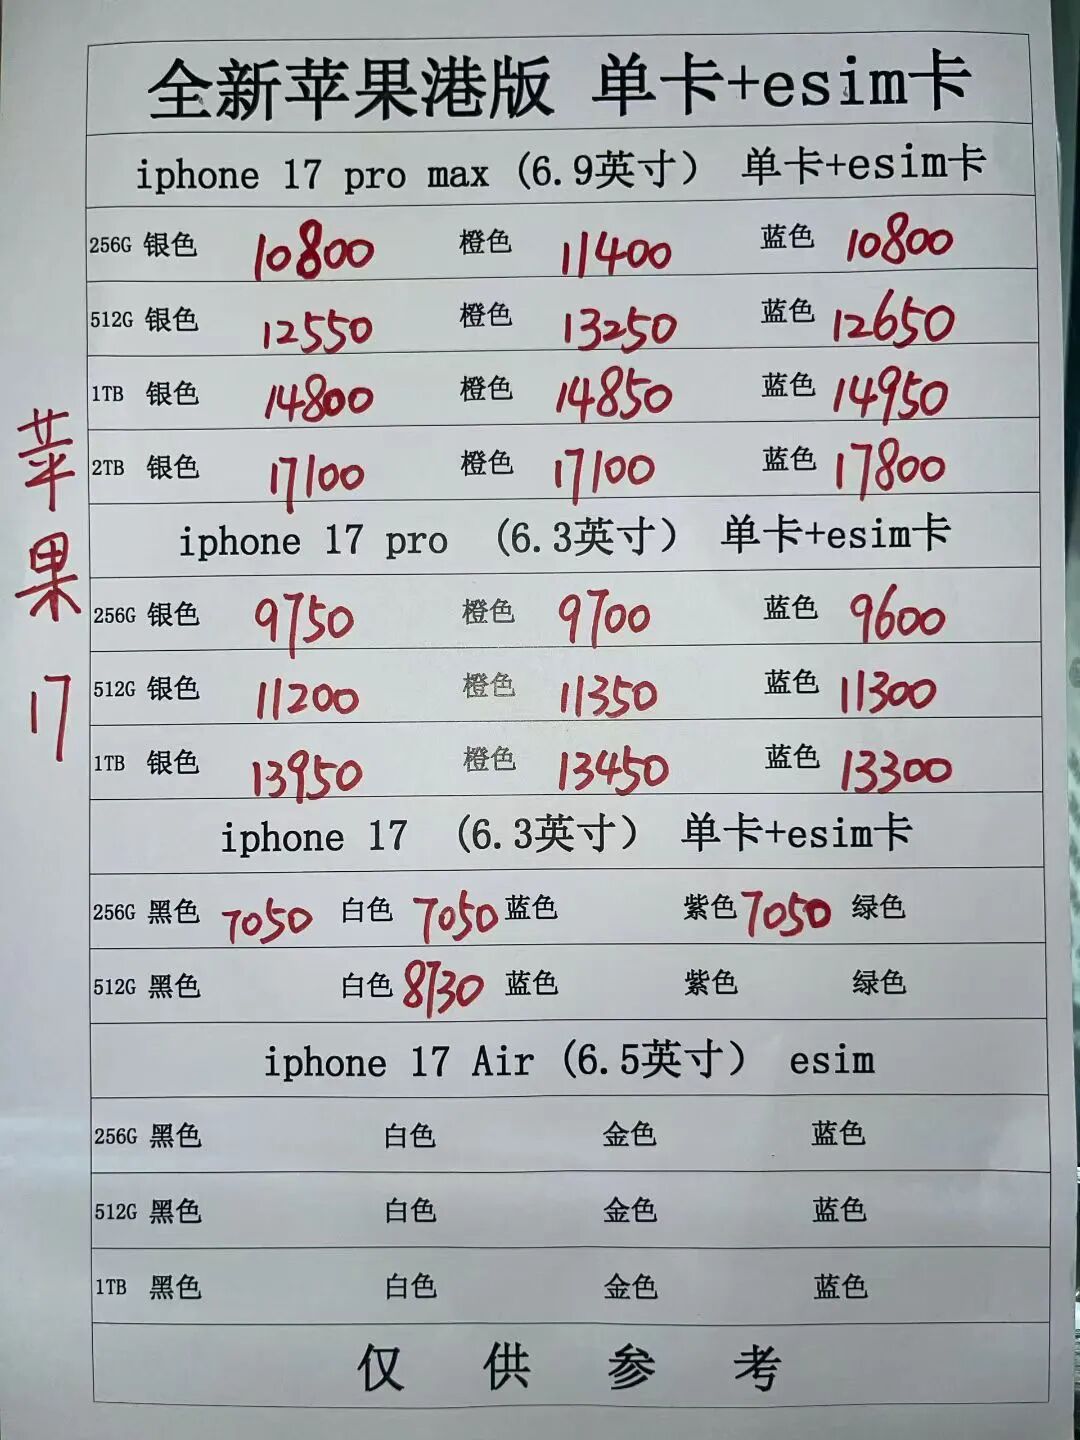 全新苹果港版 单卡+esim卡
iphone 17 pro max (6.9英寸) 单卡+esim卡
256G 银色 10800 橙色 11400 蓝色 10800
512G 银色 12550 橙色 13250 蓝色 12650
1TB 银色 14800 橙色 14850 蓝色 14950
2TB 银色 17100 橙色 17100 蓝色 17800
iphone 17 pro (6.3英寸) 单卡+esim卡
256G 银色 9750 橙色 9700 蓝色 9600
512G 银色 11200 橙色 11350 蓝色 11300
1TB 银色 13950 橙色 13450 蓝色 13300
iphone 17 (6.3英寸) 单卡+esim卡
256G 黑色 7050 白色 7050 蓝色 紫色 7050 绿色
512G 黑色 白色 8730 蓝色 紫色 绿色
iphone 17 Air (6.5英寸) esim
256G 黑色 白色 金色 蓝色
512G 黑色 白色 金色 蓝色
1TB 黑色 白色 金色 蓝色
仅供参考
苹果17